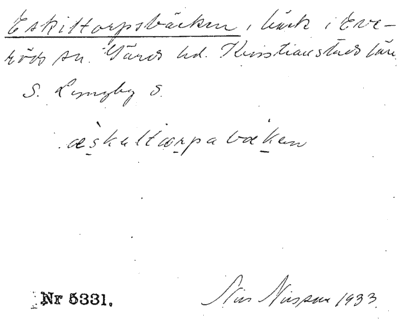 Eskiltorpsbäcken, bäck i Eve-
röds sn. Gärds hd. Kristianstads län
S. Lyngby s.
æskultorpabækan
Nr 5331. Nils Nilsson 1933.